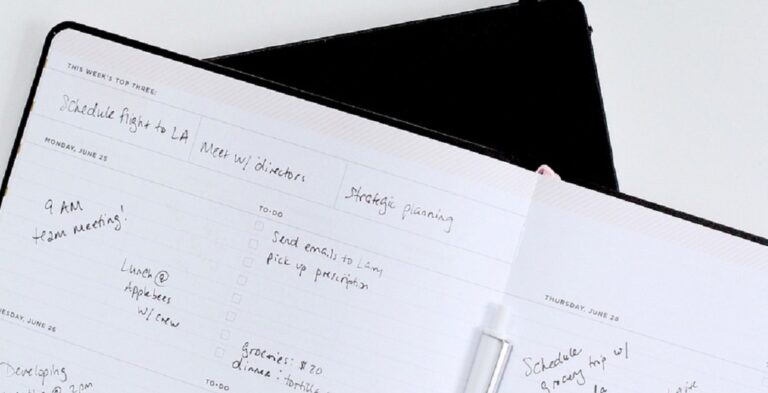 THIS WEEK'S TOP THREE:
Schedule flight to LA
Meet w/ directors
Strategic planning
MONDAY, JUNE 25
9 AM
team meeting!
Lunch @
Applebees
w/ crew
TO-DO
Send emails to Lam
pick up prescription
groceries: $20
dinner:
JUNE 26
Developing
@ 2pm
TO-DO
THURSDAY, JUNE 28
Schedule
grocery trip w/